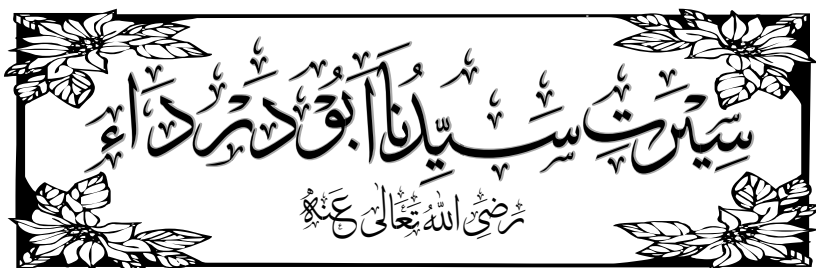 سِیْرَتِ سَیِّدُنَا اَبُوْ دَرْدَاء
رَضِیَ اللهُ تَعَالٰی عَنْهُ